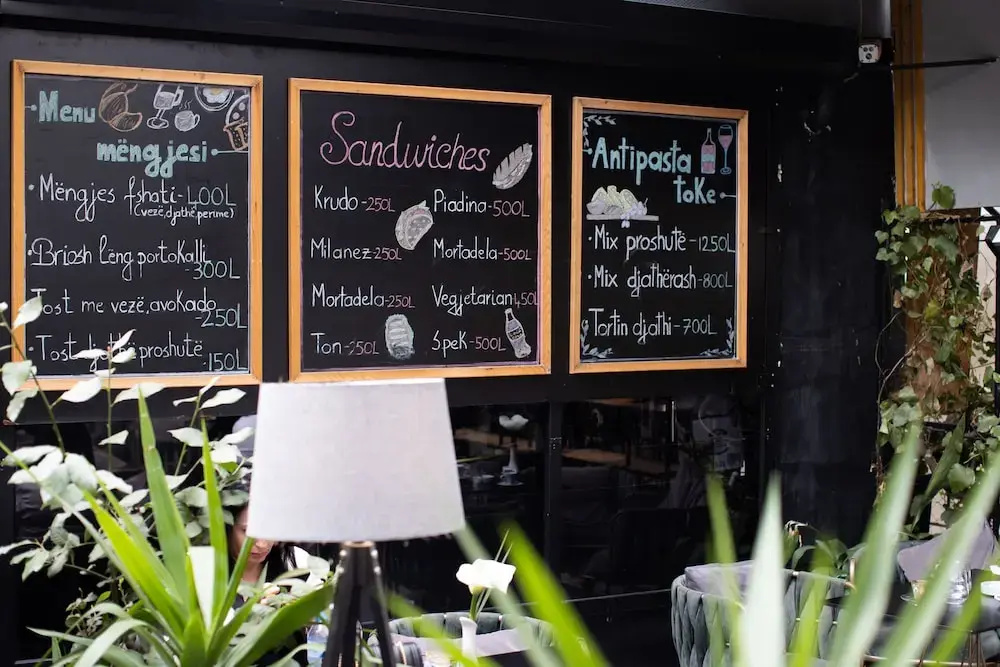 Menu
mëngjesi
Mëngjes fshati-400L
(vezë,djathë,perime)
Briosh lëng portokalli
-300L
Tost me vezë,avokado
-250L
Tost djathi proshutë
-150L
Sandwiches
Krudo-250L
Piadina-500L
Milanez-250L
Mortadela-500L
Mortadela-250L
Vegjetarian-450L
Ton-250L
Špek-500L
Antipasta
toke
Mix proshutë-1250L
Mix djathërash-800L
Tortin djathi-700L